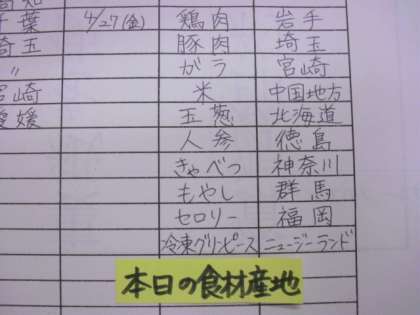 4/27(金) 鶏肉 岩手
埼玉 豚肉 埼玉
〃 ガラ 宮崎
宮崎 米 中国地方
愛媛 玉葱 北海道
人参 徳島
きゃべつ 神奈川
もやし 群馬
セロリー 福岡
冷凍グリンピース ニュージーランド
本日の食材産地